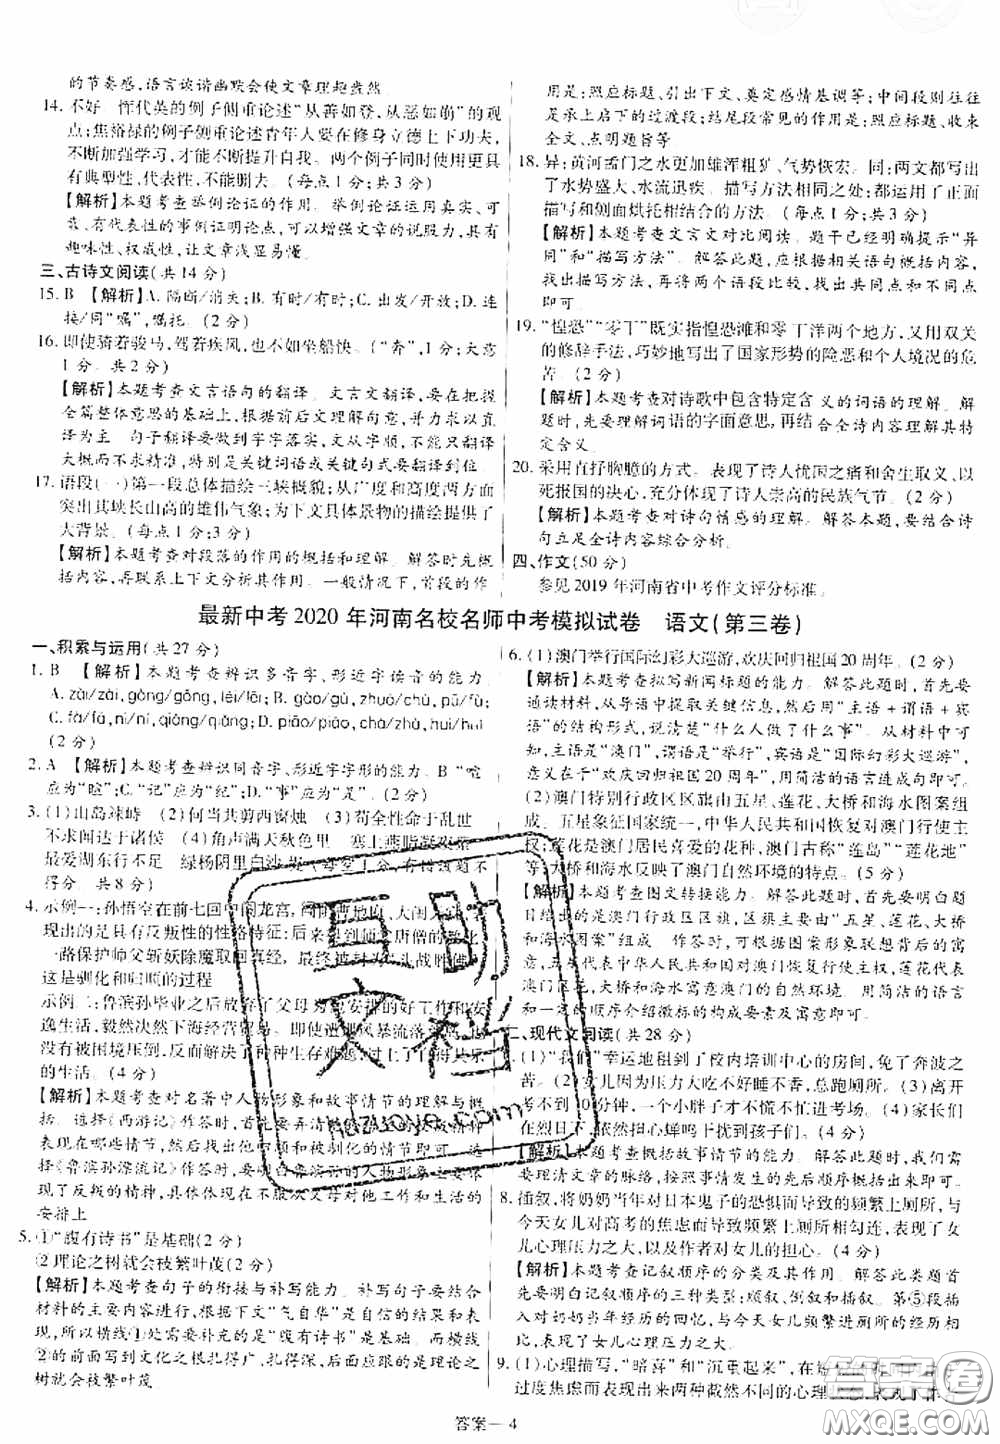 的节奏感,语言诙谐幽默会使文章理趣盎然
14. 不好 恽代英的例子侧重论述“从善如登,从恶如崩”的观
点;焦裕禄的例子侧重论述青年人要在修身立德上下功夫,
不断加强学习,才能不断提升自我。两个例子同时使用更具
有典型性,代表性,不能删大。(共3分)
【解析】本题考查举例论证的作用。举例论证运用真实、可
靠、有代表性的事例证明论点,可以增强文章的说服力,具有
趣味性、权威性,让文章浅显易懂。
三、古诗文阅读(共14分)
15. B 【解析】A. 隔断/消失;B. 有时/有时;C. 出发/开放;D. 连
接/同“嘱”,嘱托。(2分)
16. 即使骑着骏马,驾着疾风,也不如坐船快。(“奔”,1分;大意
1分。共2分)
【解析】本题考查文言语句的翻译。文言文翻译,要在结合
全篇整体意思的基础上,根据前后文理解句意,并力求以直
译为主 句子翻译要做到字字落实,原文原意,不能只翻译
大概而不精细,特别是关键词语或关键句式要准确翻译。
17. 语段(一)第一段总体描绘三峡概貌;从广度和高度两方面突
出其峡长山高的雄伟气象;为下文具体景物的描写提供了
大背景。(每点1分;共3分)
【解析】本题考查对段落的作用的概括和理解。解答时先概
括内容,再联系上下文分析其作用。一般情况下,首段的作
用是:照应标题、引出下文、奠定感情基调等;中间段则会起
承上启下的过渡段;结尾段常见的作用是:照应标题、收束
全文、点明题旨等。
18. 异:黄河孟门之水更加雄浑粗犷、气势恢宏。同:两文都写出
了水势盛大、水流迅疾。描写方法相同之处:都运用了正面
描写和侧面烘托相结合的方法。(每点1分;共3分)
【解析】本题考查文言文对比阅读。题干已经明确提示“异
同”和“描写方法”。解答此题,应根据相关语句概括内容,
找出异同,并根据具体的语句对两个语段比较,具体作答即
可。
19. “惶恐”“零丁”既实指惶恐滩和零丁洋两个地方,又用双关
的修辞手法,巧妙地写出了国家形势的险恶和个人境况的危
苦。(2分)
【解析】本题考查对诗歌中包含特定含义的词语的理解。解
题时,先要理解词语的字面意思,再结合全诗内容挖掘其特
定含义。
20. 采用直抒胸臆的方式。表现了诗人忧国之痛和舍生取义,以
死报国的决心,充分体现了诗人崇高的民族气节。(2分)
【解析】本题考查对诗句情感的理解。解答本题,要结合诗
句立足全诗内容综合分析。
四、作文(50分)
参见2019年河南省中考作文评分标准。
最新中考2020年河南名校名师中考模拟试卷 语文(第三卷)
一、积累与运用(共27分)
1. B 【解析】本题考查辨识多音字、形近字读音的能力。
A. zǎi/zài,gōng/gǒng,lèi/lěi;B. gòu,zhuó/chù,pū/fù;
C. fà/fā,ní/nì,qiǎng/qiāng;D. piāo/piáo,chā/zhā,hú/hù。
(2分)
2. A 【解析】本题考查辨识同音字、形近字字形的能力。B“喧”
应为“暄”;C.“记”应为“纪”;D.“事”应为“是”。(2分)
3. (1)山岛竦峙 (2)何当共剪西窗烛 (3)苟全性命于乱世
不求闻达于诸侯 (4)角声满天秋色里 塞上燕脂凝夜紫
最爱湖东行不足 绿杨阴里白沙堤(每空1分,错题不
得分。共8分)
4. 示例一:孙悟空在前七回中闹龙宫,闹地府,大闹天宫,
现出的是具有反叛性的性格特征;后来到了唐僧的教化
一路保护师父斩妖除魔取回真经,最终被封为斗战胜佛,
这是驯化和归顺的过程
示例二:鲁滨孙毕业之后放弃了父母为他安排的好工作和安
逸生活,毅然决然下海经营贸易。遭遇风暴流落荒岛,
没有被困境压倒,反而进行了种种生存难,开始了自得其乐
的生活。(4分)
【解析】本题考查对名著中人物形象和故事情节的理解与概
括。选择《西游记》作答时,要结合孙悟空的形象
表现在哪些方面,他又是如何被驯化的等情节即可。选择
《鲁滨孙漂流记》作答时,要结合鲁滨孙的人物形象主要表现
了反叛的精神,具体表现在不服从父母对他工作和生活的
安排上
5. ①“腹有诗书”是基础(2分)
②理论之树就会枝繁叶茂(2分)
【解析】本题考查句子的衔接与补写能力。补写句子要结合
材料的主要内容进行,根据下文“气自华”是自信的结果和表现,
所以横线①处需要补充的是“腹有诗书”的基础作用。而横线
②的前面写到文化之根扎得广、扎得深,后面应跟的是理论之
树就会枝繁叶茂。
6. (1)澳门举行国际幻彩大巡游,欢庆回归祖国20周年。(2分)
【解析】本题考查拟写新闻标题的能力。解答此题时,首先要
通读材料,从导语中提取关键信息,然后运用“主语+谓语+宾
语”的结构形式,说清楚“什么人做了什么事”。从材料中可
知,主语是“澳门”,谓语是“举行”,宾语是“国际幻彩大巡游”,
目的在于“欢庆回归祖国20周年”,用简洁的语言连成句即可。
(2)澳门特别行政区区旗由五星、莲花、大桥和海水图案组
成。五星象征国家统一,中华人民共和国恢复对澳门行使主
权;莲花是澳门居民喜爱的花种,澳门古称“莲岛”“莲花地”
等;大桥和海水寓意澳门自然环境的特点。(5分)
【解析】本题考查图文转换能力。解答此题时,首先要根据题
目给出的澳门行政区区旗,区旗主体要素由“五星、莲花、大桥
和海水图案”组成 作答时,要根据各构成要素的特点,突出
五星代表中华人民共和国对澳门恢复行使主权,莲花代表澳
门,大桥和海水寓意澳门的自然环境。用简洁的语言
有条理地结合介绍徽标的构成要素及寓意即可。
二、现代文阅读(共28分)
7. (1)“我们”幸运地租到了校内培训中心的房间,免了奔波之
苦。(2)女儿因为压力大吃不好睡不香,总跑厕所。(3)离开
考不到10分钟,一个小胖子才不慌不忙进考场。(4)家长们
在烈日下,依然担心蝉鸣干扰到孩子们。(4分)
【解析】本题考查概括故事情节的能力。解答此题时,我们要
理清文章的脉络,按照故事情节的发展概括即可。
8. 插叙,将奶奶当年对日本鬼子的恐惧而导致的频繁上厕所,与
今天女儿对高考的焦虑而导致频繁上厕所相勾连,表现了女
儿心理压力之大,以及作者对女儿的担心。(4分)
【解析】本题考查记叙顺序的分类及其作用。解答此类题首
先要明白记叙顺序的三种类型:顺叙、倒叙和插叙。第⑤段插
叙奶奶当年经历的回忆,与今天女儿频繁进出厕所的行为对
比,表现了女儿心理压力之大。
9. (1)心理描写,“暗喜”和“沉重起来”,
过度焦虑而造成的这两种截然不同的心理
答案— 4
答案圈
MXQE.COM